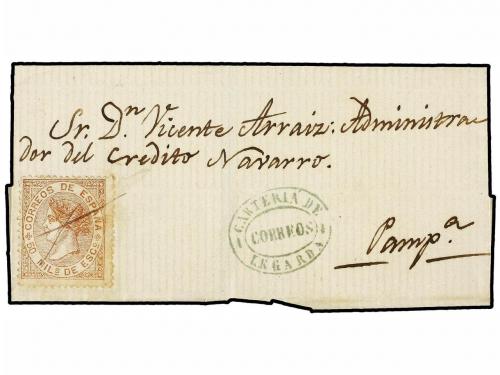 Sr. Dn. Vicente Arraiz: Administra-
dor del Credito Navarro.
CORREOS DE ESPAÑA
50 MILS DE ESCO
CARTERIA DE
CORREOS
LEGARDA
Pampa